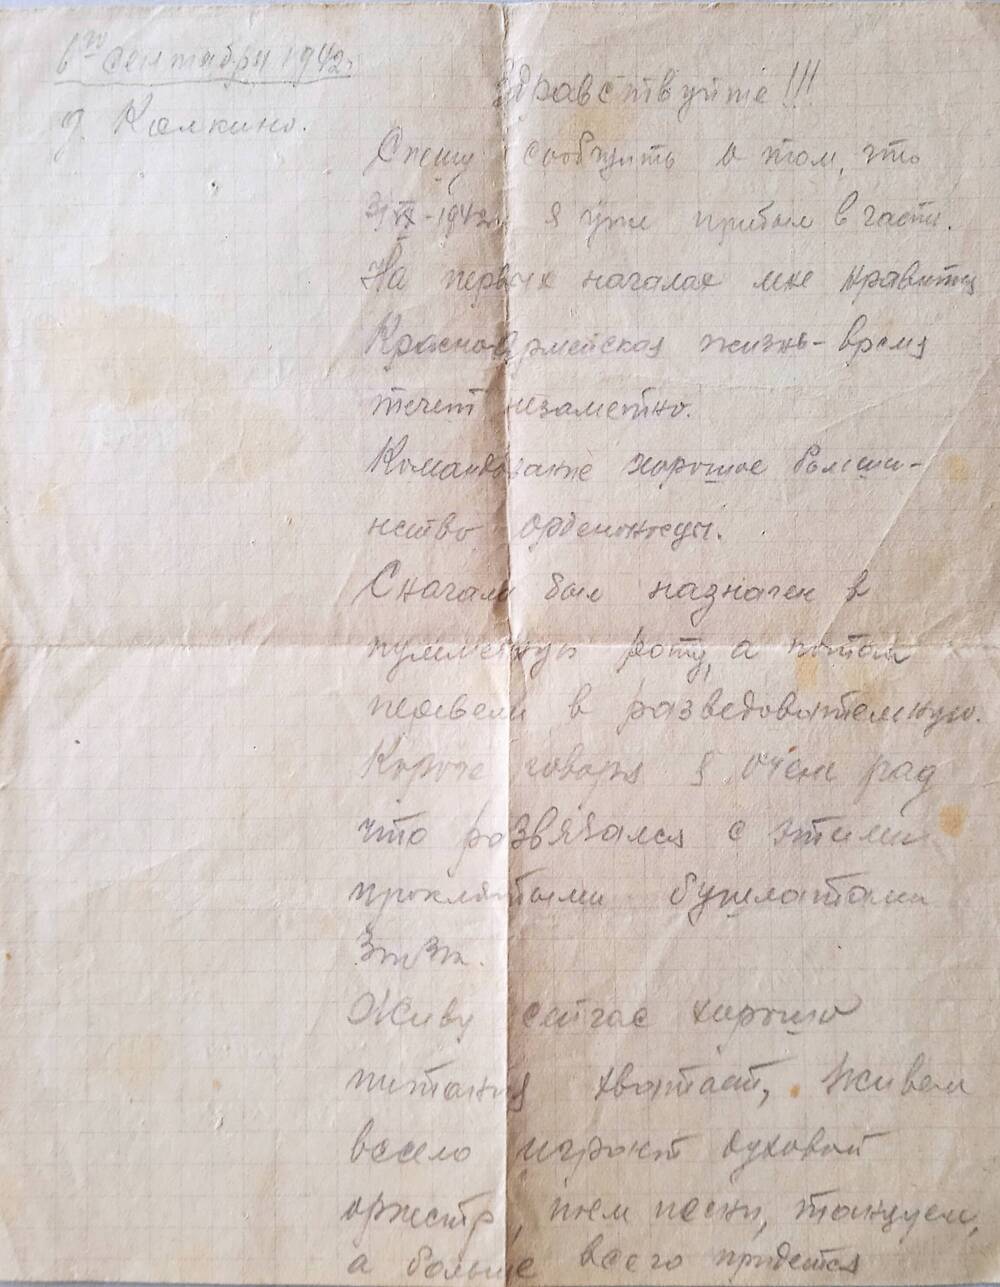 6го сентября 1942г.
д. Калкино.
Здравствуйте!!!
Спешу сообщить о том, что
1942г. я уже прибыл в часть.
На первых началах мне нравится
Красно-армейская жизнь - время
течет незаметно.
Командование хорошое больши-
нство орденоносцы.
Сначала был назначен в
пулеметную роту, а потом
перевели в разведовательную.
Короче говоря я очень рад
что развязался с этими
проклятыми бушлатами
Живу сейчас хорошо
питания хватает, живем
весело играют духовой
оркестр, поем песни, танцуем,
а больше всего придется